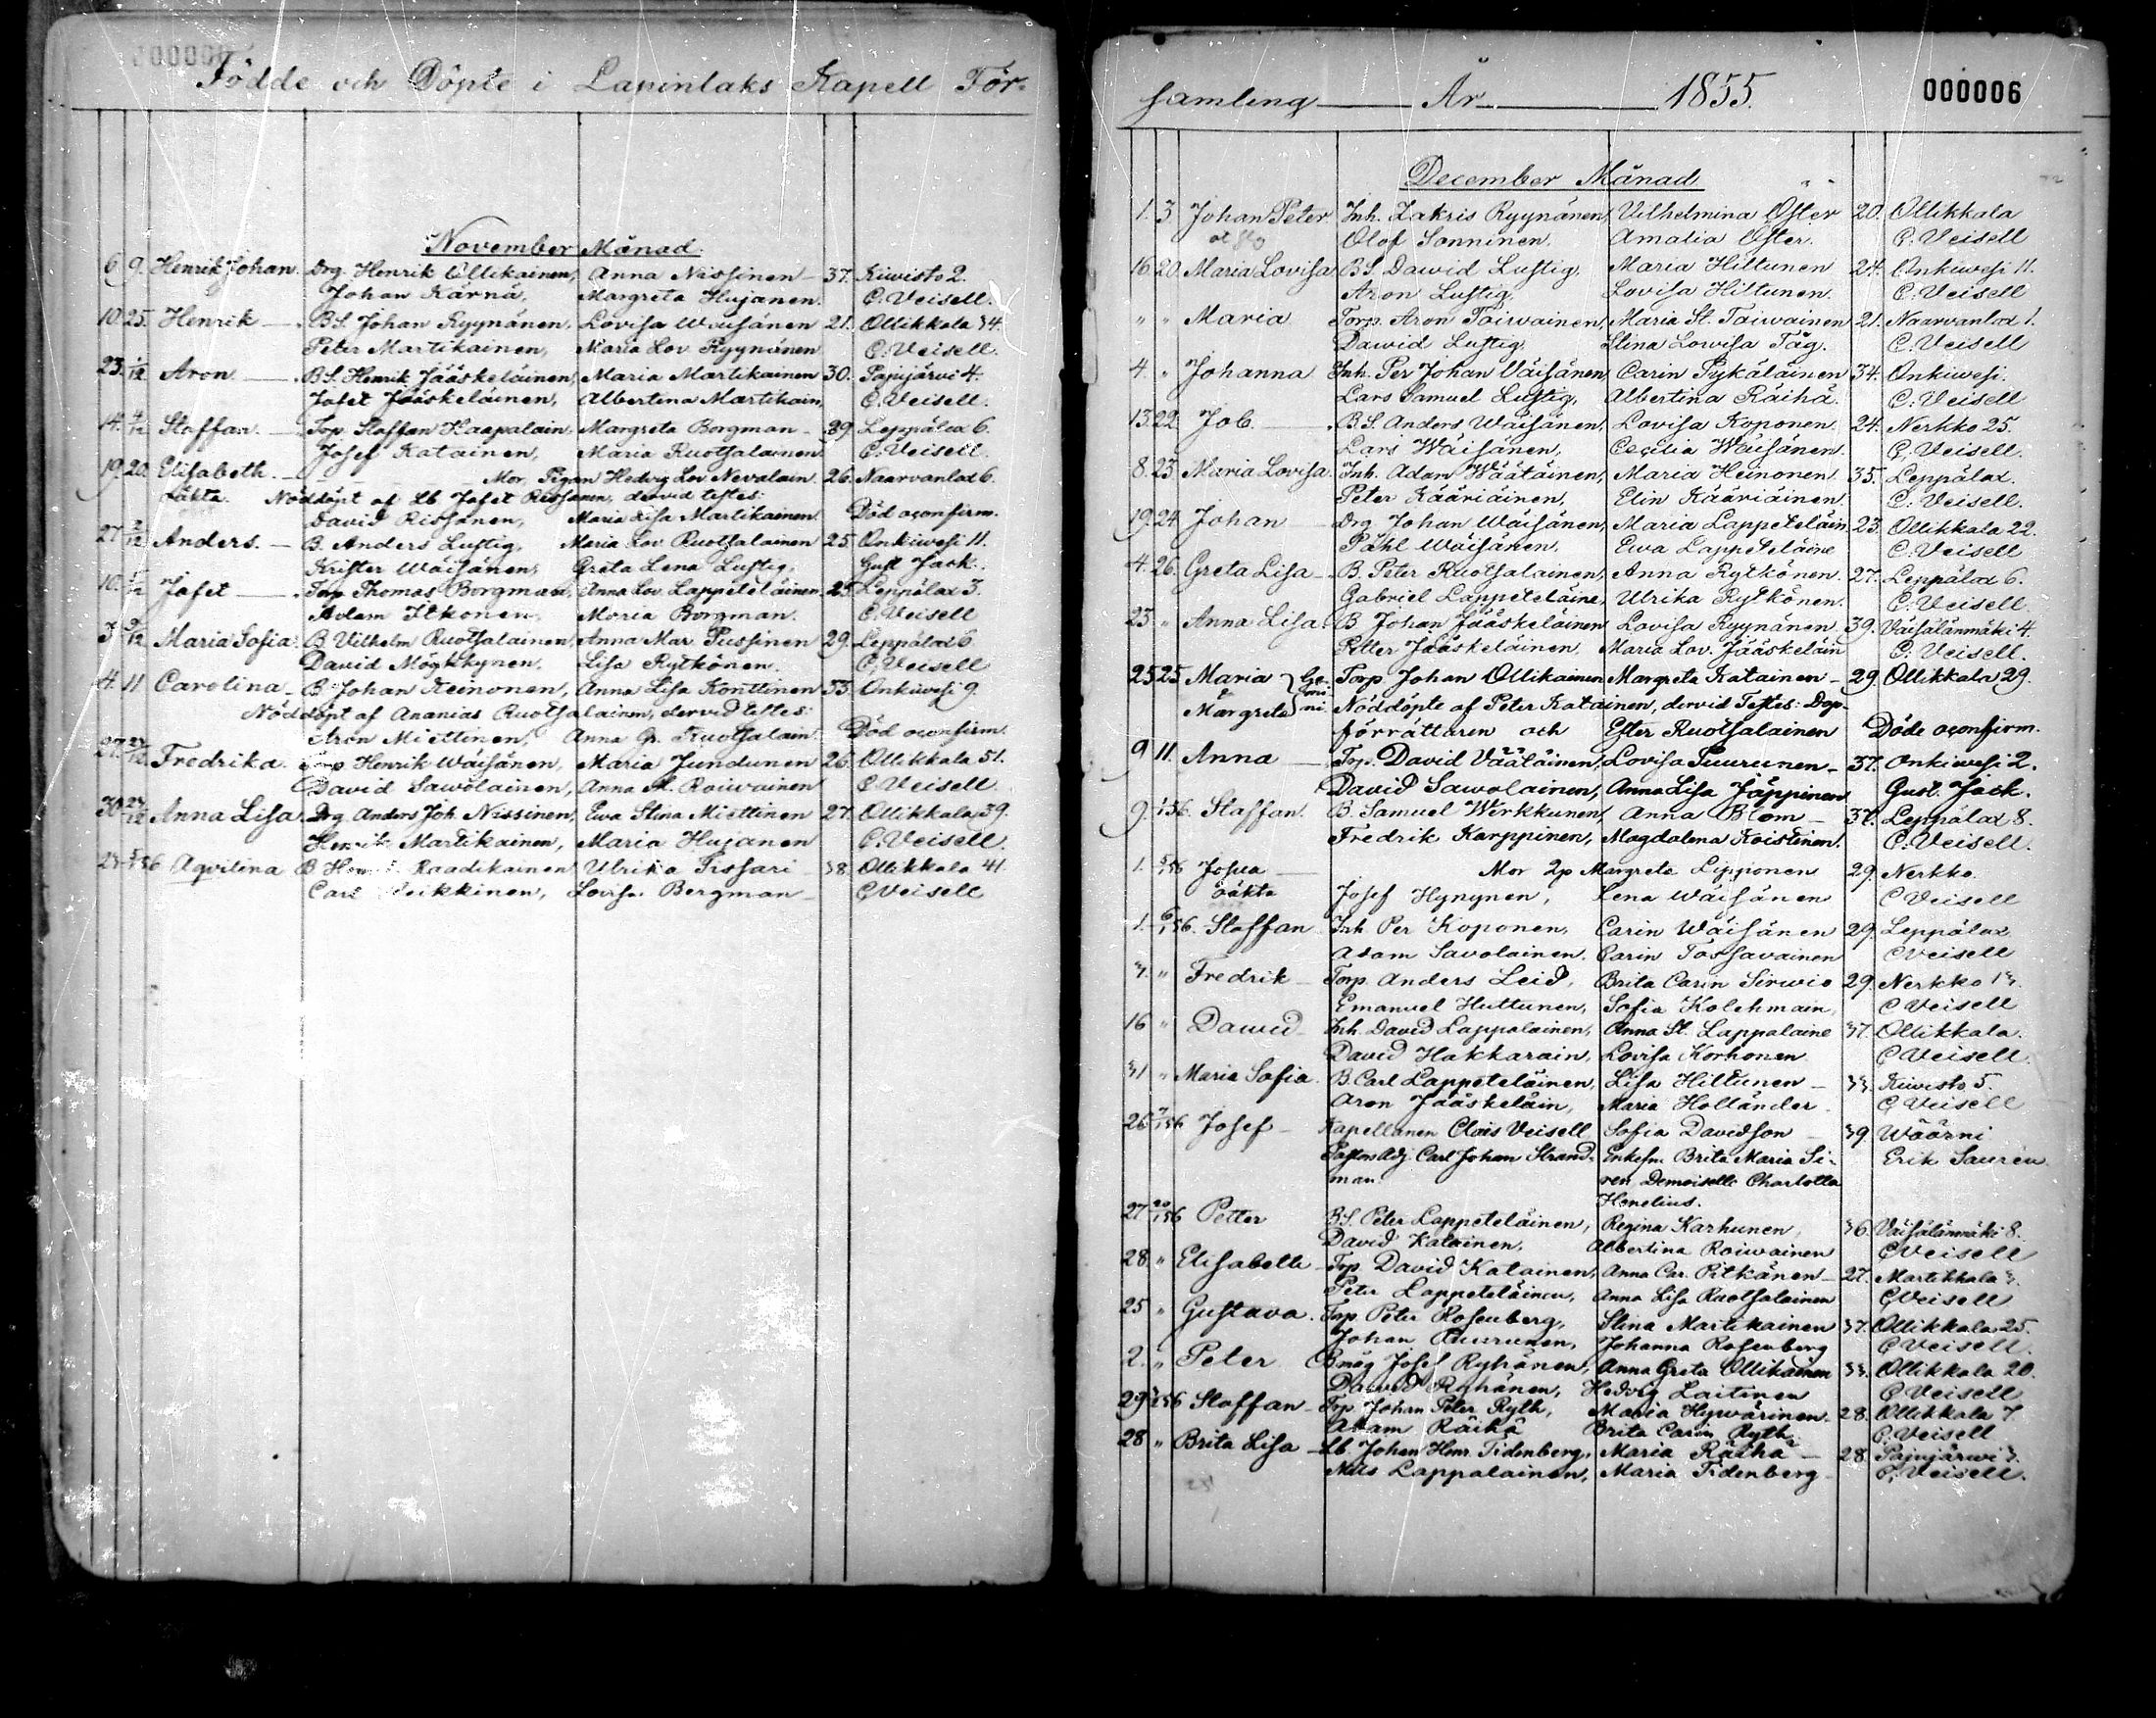 Födde och Döpte i Lapinlaks Kapell För-
November Månad.
6. 9. Henrik Johan. Drg. Henrik Ollikainen, Anna Nissinen 37. Kiwisto 2.
Johan Kärnä, Margreta Hujanen. C. Veisell.
10. 25. Henrik B.S. Johan Ryynänen, Lovisa Wäisänen 21. Ollikkala 34.
Peter Martikainen, Maria Lov. Ryynänen C. Veisell.
23. 1/12 Aron B.S. Henrik Jääskeläinen, Maria Martikainen 30. Pajujärvi 4.
Josef Jääskeläinen, Albertina Martikain, C. Veisell.
14. 4/12 Staffan. Torp. Staffan Haapalain, Margreta Borgman 39. Leppälax 6.
Josef Katainen, Maria Ruotsalainen C. Veisell.
19. 20. Elisabeth. Mor, Pigan Hedvig Lov. Nevalain. 26. Naarvanlax 6.
oäkta. Nöddöpt af Lb Jafet Rissanen, dervid testes:
David Rissanen, Maria Lisa Martikainen. Död oconfirm.
27 2/12 Anders. B. Anders Lustig, Maria Lov. Ruotsalainen 25. Onkiwesi 11.
Krister Wäisänen, Greta Lena Lustig. Gust. Jack.
10. 5/12 Jafet Torp Thomas Borgman, Anna Lov. Lappeteläinen. 25 Leppälax 3.
Adam Itkonen, Maria Borgman. C. Veisell
3 9/12 Maria Sofia. B Vilhelm Ruotsalainen, Anna Mar. Pussinen 29. Leppälax 6
David Mögkkynen, Lisa Rytkönen. C. Veisell
4. 11. Carolina B. Johan Heinonen, Anna Lisa Konttinen 33. Onkiwesi 9.
Nöddöpt af Ananias Ruotsalainen, dervid testes:
Aron Miettinen, Anna Gr. Ruotsalain. Död oconfirm.
27. Fredrika. Torp Henrik Wäisänen, Maria Jundunen 26. Ollikkala 51.
David Sawolainen, Anna M. Roiwainen C Veisell
30 Anna Lisa. Drg. Anders Joh. Nissinen, Ewa Stina Miettinen 27. Ollikkala 39.
Henrik Martikainen, Maria Hujanen C. Veisell.
Aqvilina B Raadikainen Ulrika Tissari 38. Ollikkala 41.
Carl Lovisa Bergman C Veisell
samling År 1855. 000006
December Månad
1. 3 Johan Peter. Inh. Zakris Ryynänen, Vilhelmina Öster 20. Ollikkala
Olof Sonninen. Amalia Öster. C. Veisell
16 20. Maria Lovisa B.S. Dawid Lustig, Maria Hiltunen 24. Onkiwesi 11.
Aron Lustig, Lovisa Hiltunen. C. Veisell
" " Maria Torp. Aron Toiwainen, Maria St. Toiwainen 21. Naarvanlax 1.
Dawid Lustig, Stina Lowisa Täg. C. Veisell
4. " Johanna Inh. Per Johan Väisänen, Carin Pykäläinen 34. Onkiwesi.
Lars Samuel Lustig, Albertina Räihä. C. Veisell
13. 22. Job. B.S. Anders Wäisänen, Lovisa Koponen. 24. Nerkko 25.
Lars Wäisänen, Cecilia Wäisänen C. Veisell.
8. 23 Maria Lovisa. Inh. Adam Wäätäinen, Maria Heinonen 35. Leppälax.
Peter Kääriäinen, Elin Kääriäinen C. Veisell.
19. 24. Johan Drg. Johan Wäisänen, Maria Lappeteläin. 23. Ollikkala 22.
Påhl Wäisänen. Ewa Lappeteläine C. Veisell
4. 26. Greta Lisa B. Peter Ruotsalainen, Anna Rytkönen. 27. Leppälax 6.
Gabriel Lappeteläine, Ulrika Rytkönen. C. Veisell.
23. " Anna Lisa. B Johan Jääskeläinen Lovisa Ryynänen 39. Väisälänmäki 4.
Petter Jääskeläinen. Maria Lov. Jääskeläin C. Veisell.
25 25. Maria Ge- Torp. Johan Ollikainen Margreta Katainen 29. Ollikkala 29.
Margreta Nöddöpte af Peter Katainen, dervid Testes: Dop-
förrättaren och Ester Ruotsalainen Döde oconfirm.
9 11. Anna Torp. David Väätäinen, Lovisa Puurunen 37. Onkiwesi 2.
David Sawolainen, Anna Lisa Jäppinen Gust. Jack.
9. 1/1 56. Staffan. B. Samuel Werkkunen, Anna Blom 37. Leppälax 8.
Fredrik Karppinen, Magdalena Koistinen. C. Veisell.
1. 5/1 56 Josua Mor 2p Margreta Lipponen 29. Nerkko.
oäkta Josef Hynynen, Lena Wäisänen C Veisell
1. 6/1 56. Staffan Inh Per Koponen, Carin Wäisänen 29. Leppälax
Adam Savolainen. Carin Tossavainen C Veisell
3. " Fredrik Torp. Anders Leid, Brita Carin Sirwio 29. Nerkko 13.
Emanuel Huttunen, Sofia Kolehmain, C Veisell
16 " Dawid Inh. David Lappalainen, Anna St. Lappalaine 37. Ollikkala.
David Hakkarain, Lovisa Korhonen C Veisell.
31 " Maria Sofia. B. Carl Lappeteläinen, Lisa Hiltunen 33. Kiwisto 5.
Aron Jääskeläin, Maria Holländer. C Veisell
26 7/1 56 Josef Kapellanen Claës Veisell Sofia Davidson 39 Wäärni
Pastors Adj. Carl Johan Strand- Enkefru Brita Maria Si- Erik Sauren.
man. ren Demoiselle Charlotta
Henelius.
27 20/1 56 Petter B.S. Peter Lappeteläinen, Regina Karhunen, 36. Väisälänmäki 8.
David Katainen, Albertina Roiwainen C Veisell
28. " Elisabeth Torp David Katainen, Anna Car. Pitkänen 27. Martikkala 3.
Peter Lappeteläinen, Anna Lisa Ruotsalainen C Veisell
25 " Gustava. Torp. Peter Rosenberg, Stina Martikainen 37. Ollikkala 25.
Johan Puurunen, Johanna Rosenberg C Veisell.
2. " Peter Bmåg Josef Ryhänen, Anna Greta Ollikainen 33. Ollikkala 20.
Dawid Ryhänen, Hedvig Laitinen C Veisell
29 Staffan Torp. Johan Peter Ryth, Maria Hywärinen. 28. Ollikkala 7
Adam Räihä Brita Carin Ryth. C. Veisell
28 " Brita Lisa Lb Johan Henr. Tidenberg, Maria Räihä 28. Pajujärwi 3.
Nils Lappalainen, Maria Tidenberg C. Veisell.